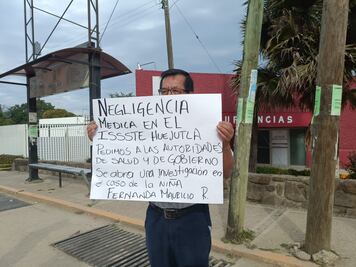 NEGLIGENCIA
MEDICA EN EL
ISSSTE HUEJUTLA
PEDIMOS A LAS AUTORIDADES
DE SALUD Y DE GOBIERNO
Se abra una investigación en
el caso de la NIÑA
FERNANDA MAURICIO R.
URGENCIAS